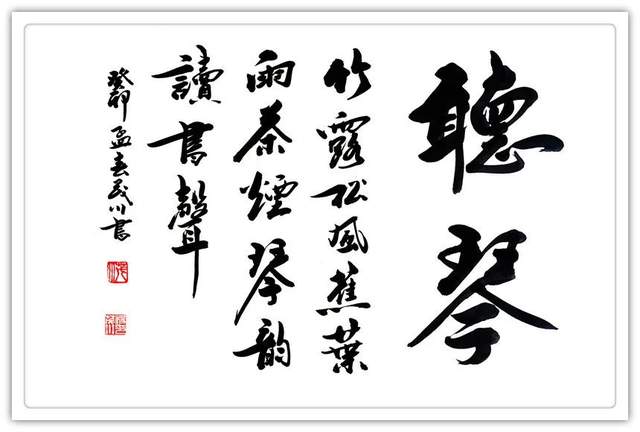 聽琴
竹露松風蕉葉
雨茶煙琴韵
讀書聲
癸卯孟春茂川書